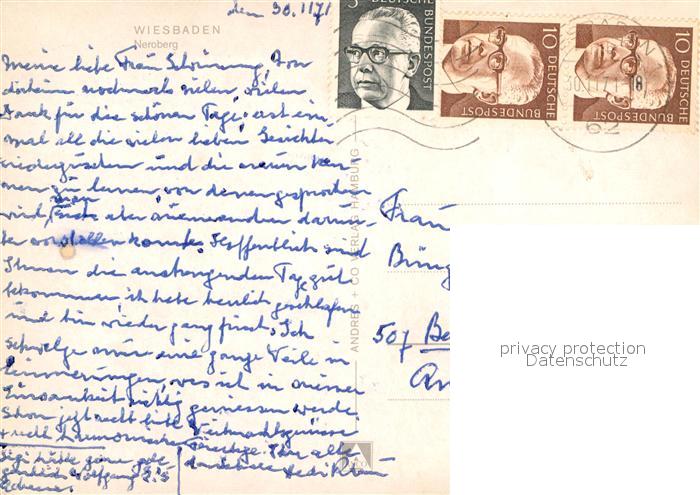 den 30.11.71
WIESBADEN
Neroberg
Meine liebe Frau Schönung, Von
daheim nochmals vielen vielen
Dank für die schönen Tage, erst ein-
mal all die vielen lieben Gesichter
wiederzusehen und die neuen ken-
nen zu lernen, von denen gesprochen
wird,
man
sich aber niemanden darun-
ter vorstellen konnte. Hoffentlich sind
Ihnen die anstrengenden Tage gut
bekommen, ich habe herrlich geschlafen
und bin wieder ganz frisch. Ich
schwelge nun eine ganze Weile in
Erinnerungen, was ich in meiner
Einsamkeit richtig geniessen werde.
Schon jetzt recht liebe Weihnachtsgrüsse
+ recht harmonische Feiertage. Ihnen alle
5
DEUTSCHE
BUNDESPOST
10 DEUTSCHE
BUNDESPOST
10 DEUTSCHE
BUNDESPOST
30.11.71-18
62
ANDRES + CO VERLAG HAMBURG
Frau
507
privacy protection
Datenschutz